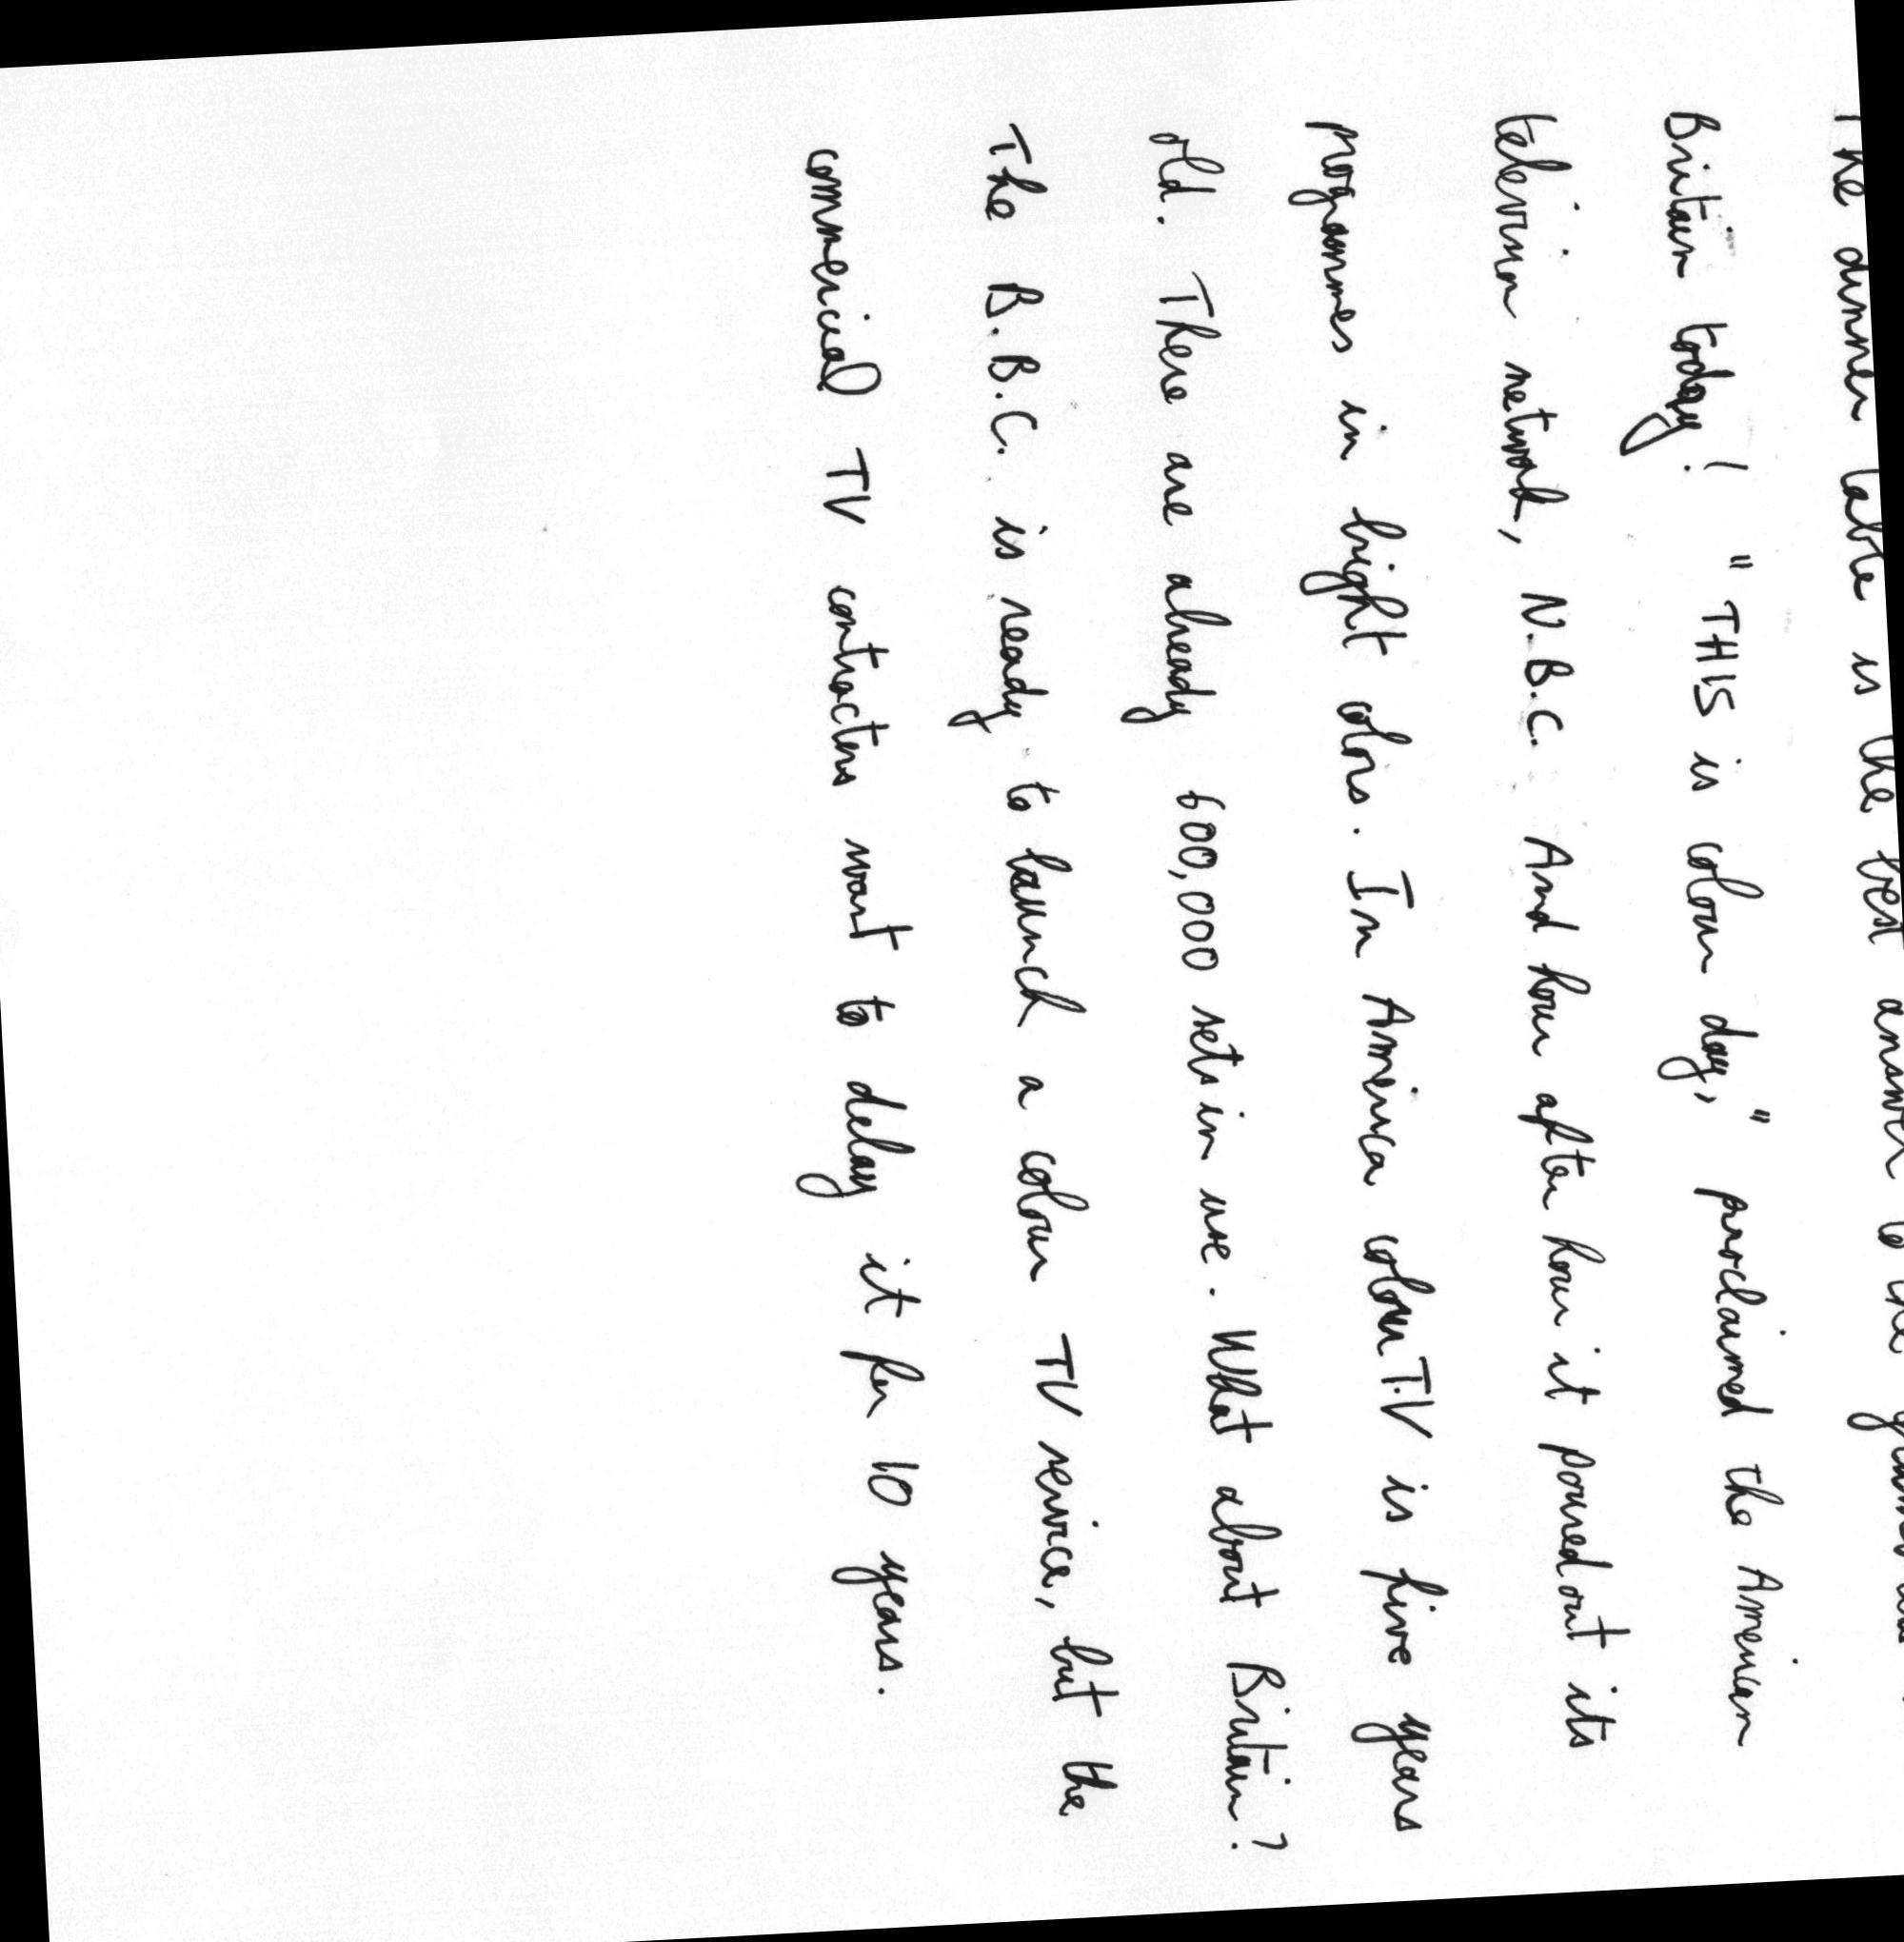 The dinner table is the best answer to the
Britain today! "THIS is colour day," proclaimed the American
television network, N.B.C. And hour after hour it poured out its
programmes in bright colors. In America colour T.V is five years
old. There are already 600,000 sets in use. What about Britain?
The B.B.C. is ready to launch a colour TV service, but the
commericial TV contracters want to delay it for 10 years.